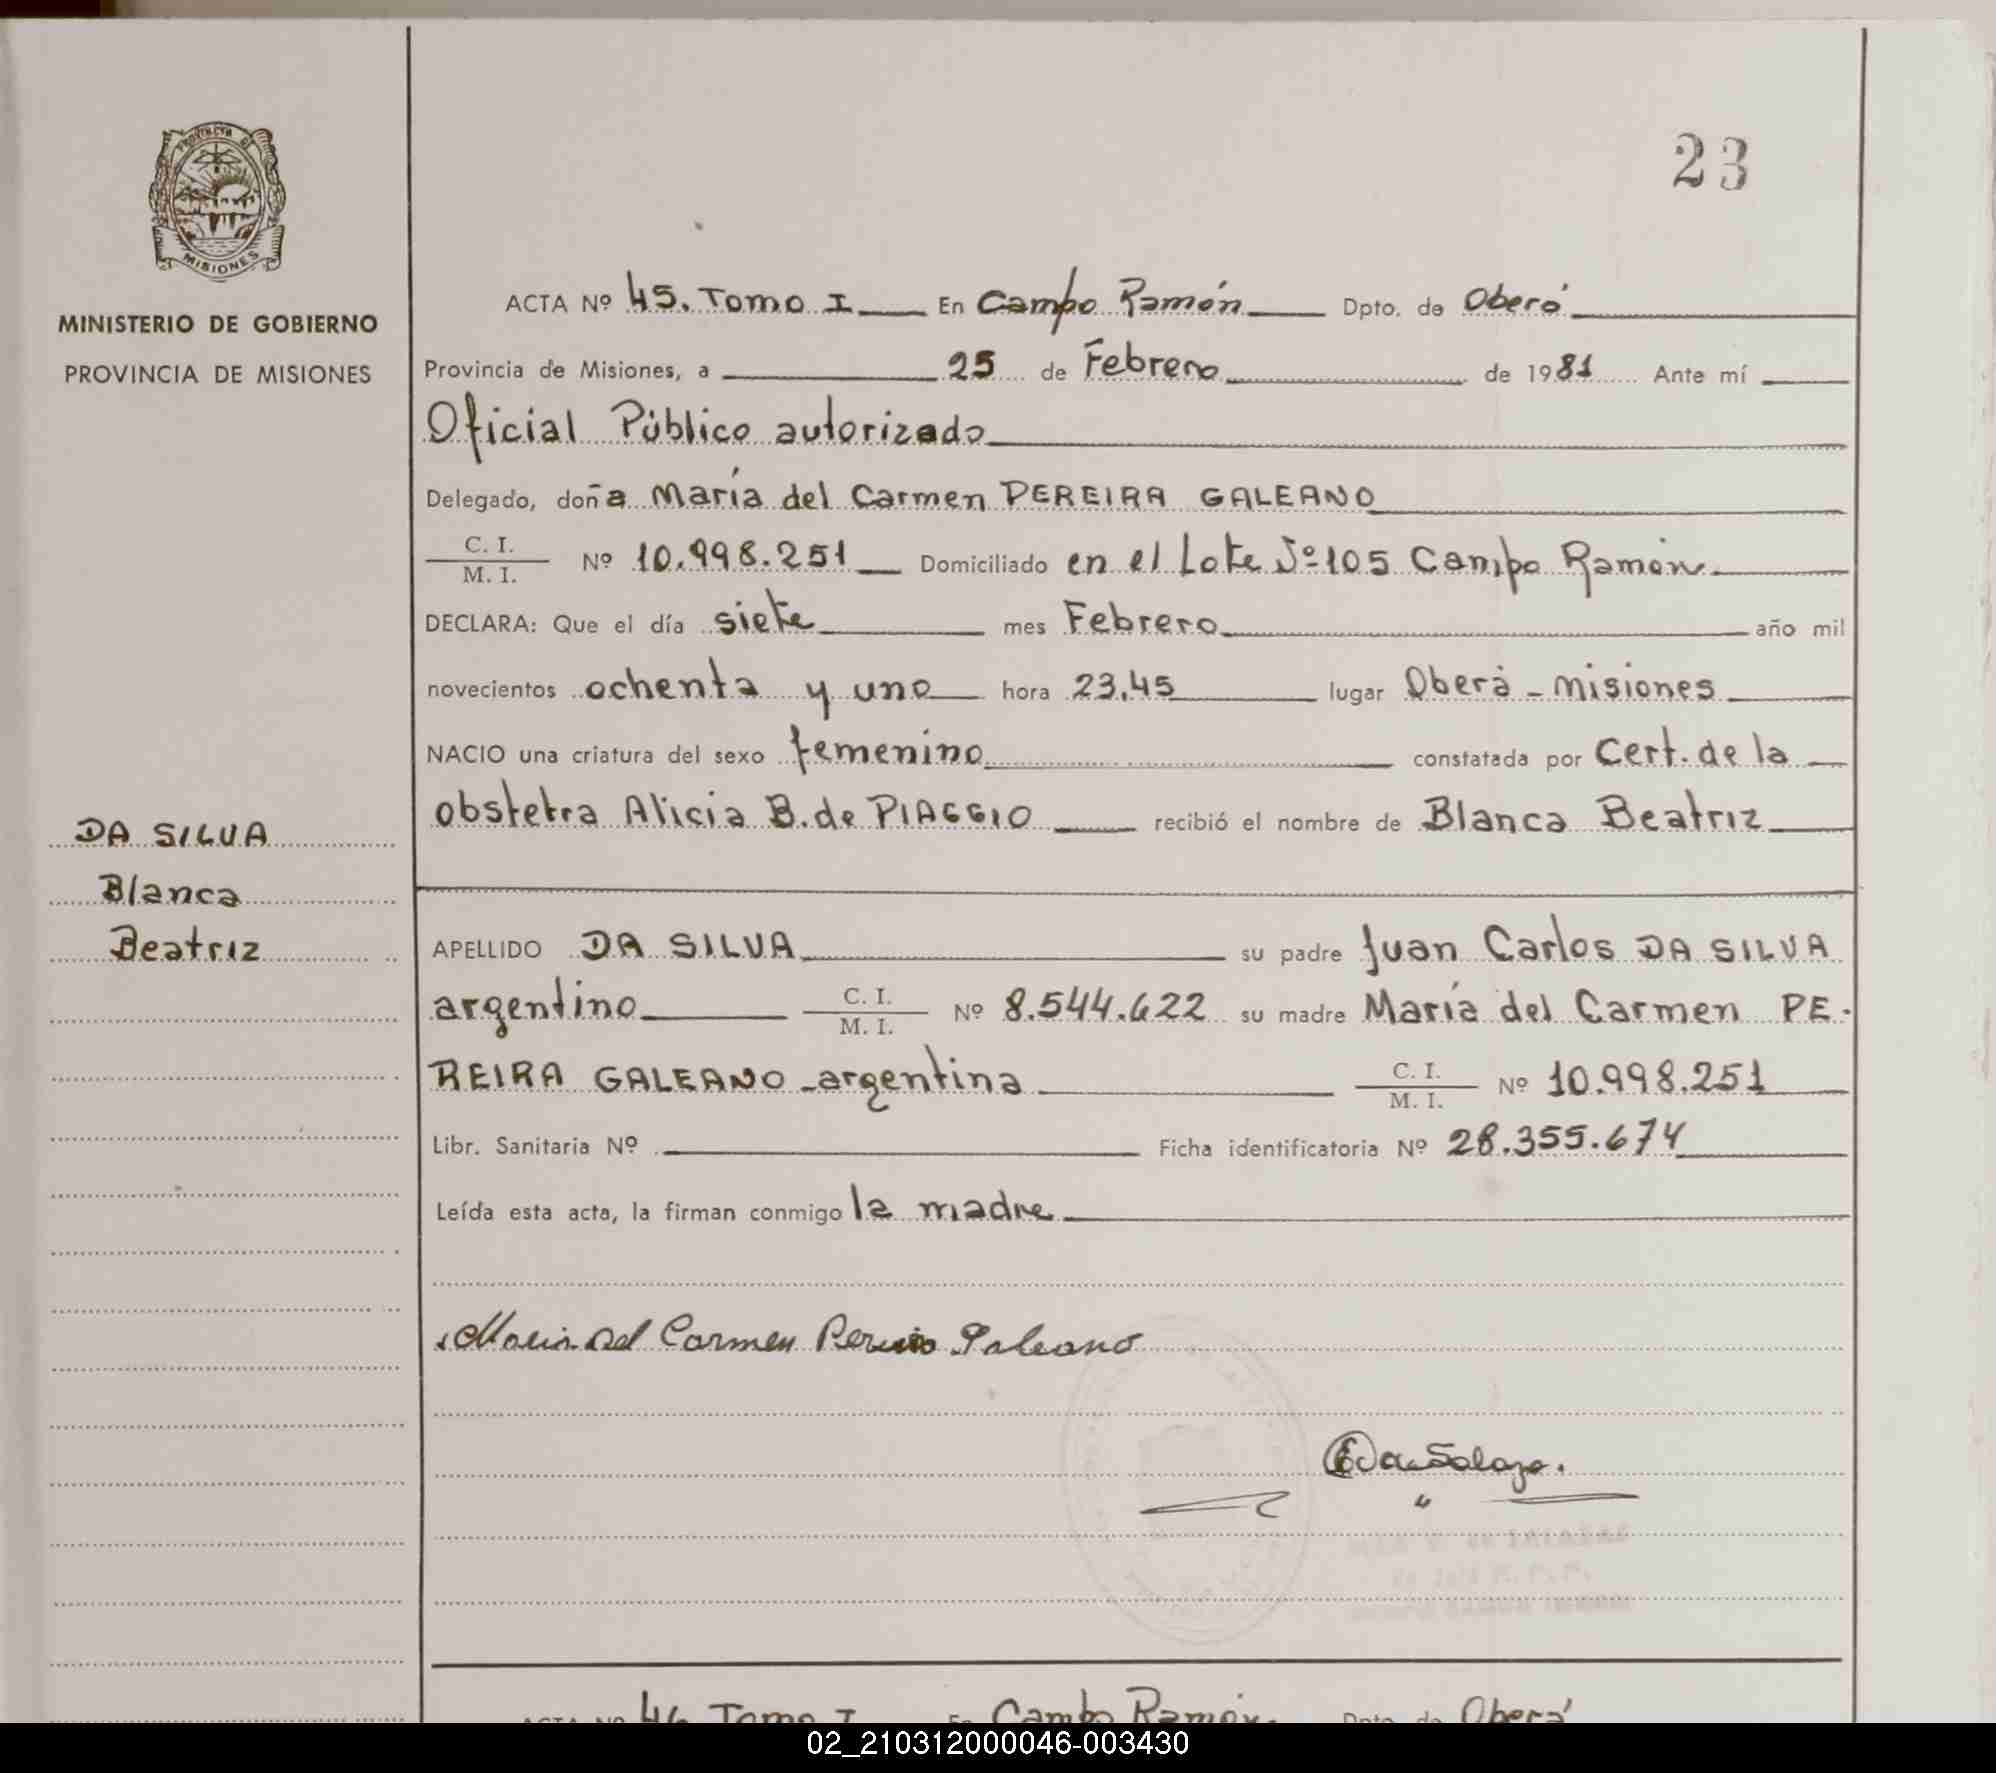 PROVINCIA DE
MISIONES
MINISTERIO DE GOBIERNO
PROVINCIA DE MISIONES
23
ACTA Nº 45. Tomo I En Campo Ramón Dpto. de Oberá
Provincia de Misiones, a 25 de Febrero de 1981 Ante mí
Oficial Público autorizado
Delegado, doña María del Carmen PEREIRA GALEANO
C. I.
M. I. Nº 10.998.251 Domiciliado en el Lote Nº 105 Campo Ramón
DECLARA: Que el día siete mes Febrero año mil
novecientos ochenta y uno hora 23,45 lugar Oberá - Misiones
NACIO una criatura del sexo femenino constatada por Cert. de la
obstetra Alicia B. de PIAGGIO recibió el nombre de Blanca Beatriz
DA SILVA
Blanca
Beatriz
APELLIDO DA SILVA su padre Juan Carlos DA SILVA
argentino C. I. M. I. Nº 8.544.622 su madre María del Carmen PE-
REIRA GALEANO - argentina C. I. M. I. Nº 10.998.251
Libr. Sanitaria Nº Ficha identificatoria Nº 28.355.674
Leída esta acta, la firman conmigo la madre
Maria Del Carmen Pereira Galeano
ACTA Nº 46 Tomo I En Campo Ramón. Dpto. de Oberá
02_210312000046-003430